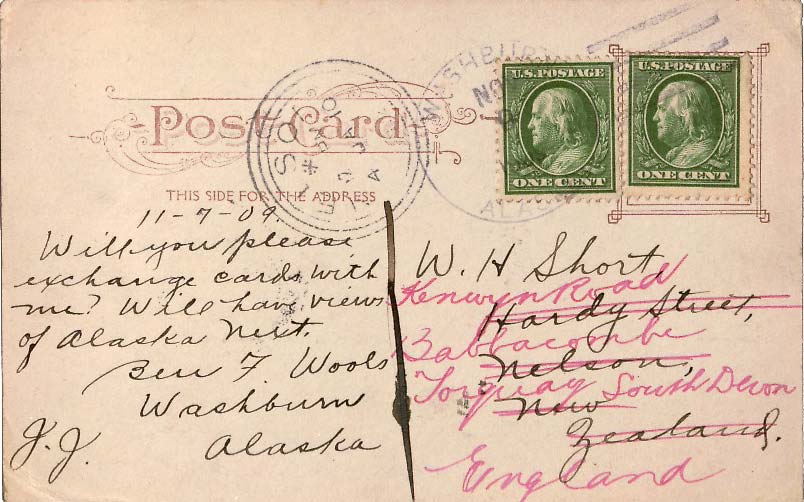 Post Card
THIS SIDE FOR THE ADDRESS
U.S. POSTAGE
ONE CENT
U.S. POSTAGE
ONE CENT
WASHBURN
NO
ALAS
NELSON
11-7-09.
Will you please
exchange cards with
me? Will have views
of Alaska next.
Ben F. Wools
Washburn
J.J. Alaska
W. H Short,
Hardy Street,
Nelson,
New
Zealand.
Kenwyn Road
Babbacombe
Torquay South Devon
England